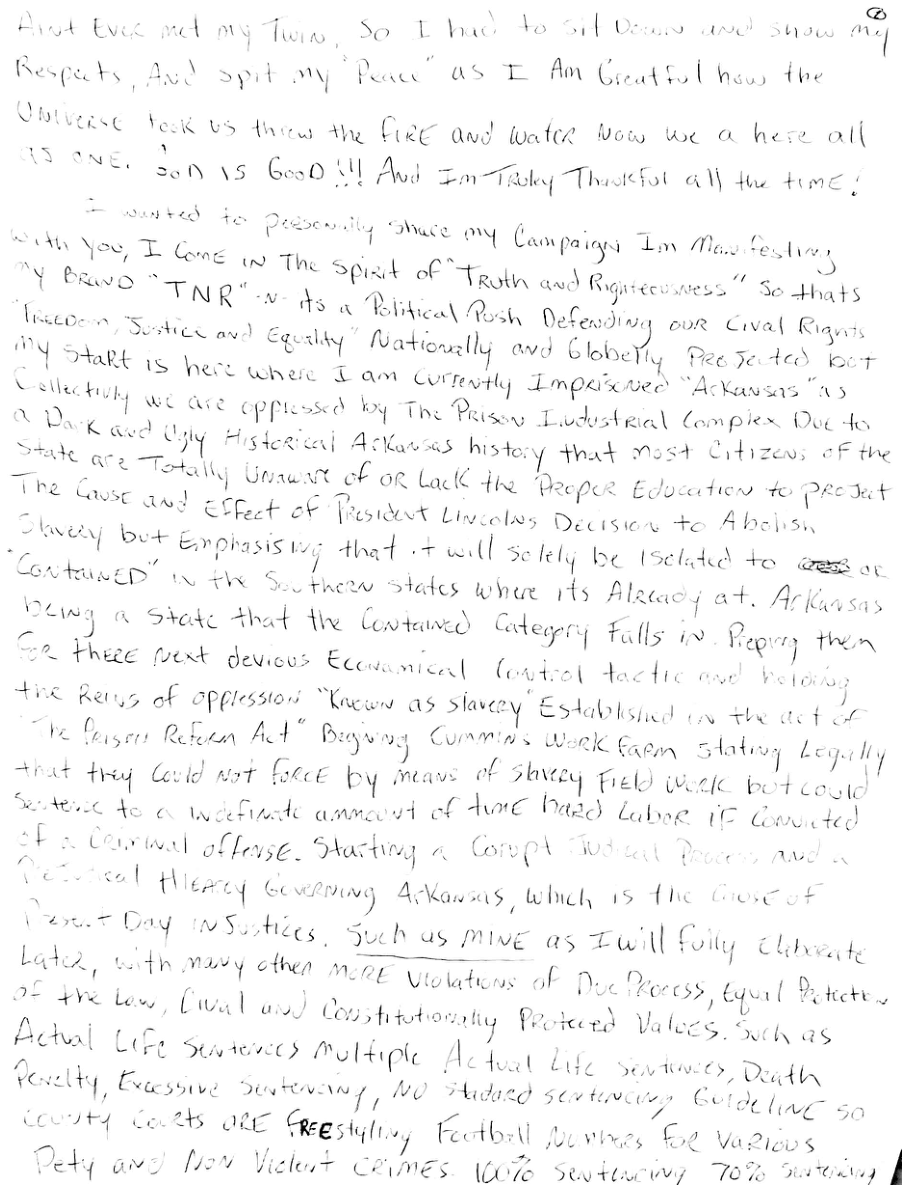 ②
Aint Ever met my Twin, So I had to sit Down and show my
Respects, And spit my "Peace" as I Am Greatful how the
UNIVERSE took us threw the FIRE and WATER Now we a here all
as ONE. GOD IS GOOD!!! And Im Truley Thankful all the time!
I wanted to personally share my Campaign Im Manifesting
with you, I Come IN The Spirit of "Truth and Righteousness" So thats
my BRAND "TNR" N its a Political Push Defending our Cival Rights
"Freedom, Justice and Equality" Nationally and Globelly Projected but
my start is here where I am currently Imprisoned "Arkansas" as
Collectivly we are oppressed by The Prison Industrial Complex Due to
a Dark and Ugly Historical Arkansas history that most Citizens of the
State are Totally Unaware of or Lack the Proper Education to project
The Cause and Effect of President Lincolns Decision to Abolish
Slavery but Emphasising that it will solely be Isolated to or
"CONTAINED" in the Southern States where its Already at. Arkansas
being a State that the Contained Category Falls in. Preping them
For there Next devious Economical Control tactic and holding
the Reins of oppression "Known as slavery" Established in the act of
"The Prison Reform Act" Begining Cummins Work Farm stating Legally
that they Could Not Force by means of slavery Field Work but could
Sentence to a indefinate ammount of time hard Labor if Convicted
of a Criminal offense. Starting a Corupt Judical Process and a
Hiearcy Governing Arkansas, which is the Cause of
Present Day INJustices. Such as MINE as I will fully Elaborate
Later, with many other MORE Violations of Due Process, Equal Protection
of the Law, Cival and Constitutionally Protected Values. Such as
Actual Life Sentences Multiple Actual Life sentences, Death
Penelty, Excessive Sentencing, NO stadard sentencing Guideline so
County Courts are FREEstyling Football Numbers for various
Pety and Non Violent crimes. 100% sentencing 70% sentencing